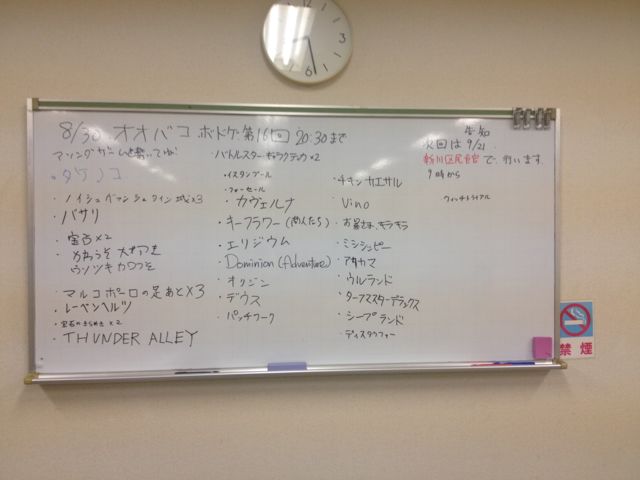 8/30 オオバコ ボドゲ 第16回 20:30まで
タケノコ
・ノイシュバンシュタイン城×3
・バサリ
・宝石×2
ウソツキカワウソ
・マルコポーロの足あと×3
・レーベンヘルツ
・宝石のきらめき×2
・THUNDER ALLEY
・バトルスターギャラクティカ×2
・イスタンブール
・フォーセール
・カヴェルナ
・キーフラワー(商人たち)
・エリジウム
・Dominion (Adventure)
・オリジン
・デウス
・パッチワーク
・チキンカエサル
・Vino
・お邪魔キラキラ
・ミシシッピー
・アタカマ
・ウルランド
・ターフマスターデラックス
・シープランド
・ディスタンファー
告知
次回は9/21
新川区民館で行います
9時から
ウィッチトライアル
3
禁煙